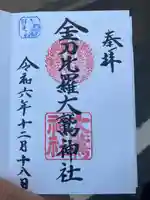 奉拝
金刀比羅大鷲神社
令和六年十二月十八日